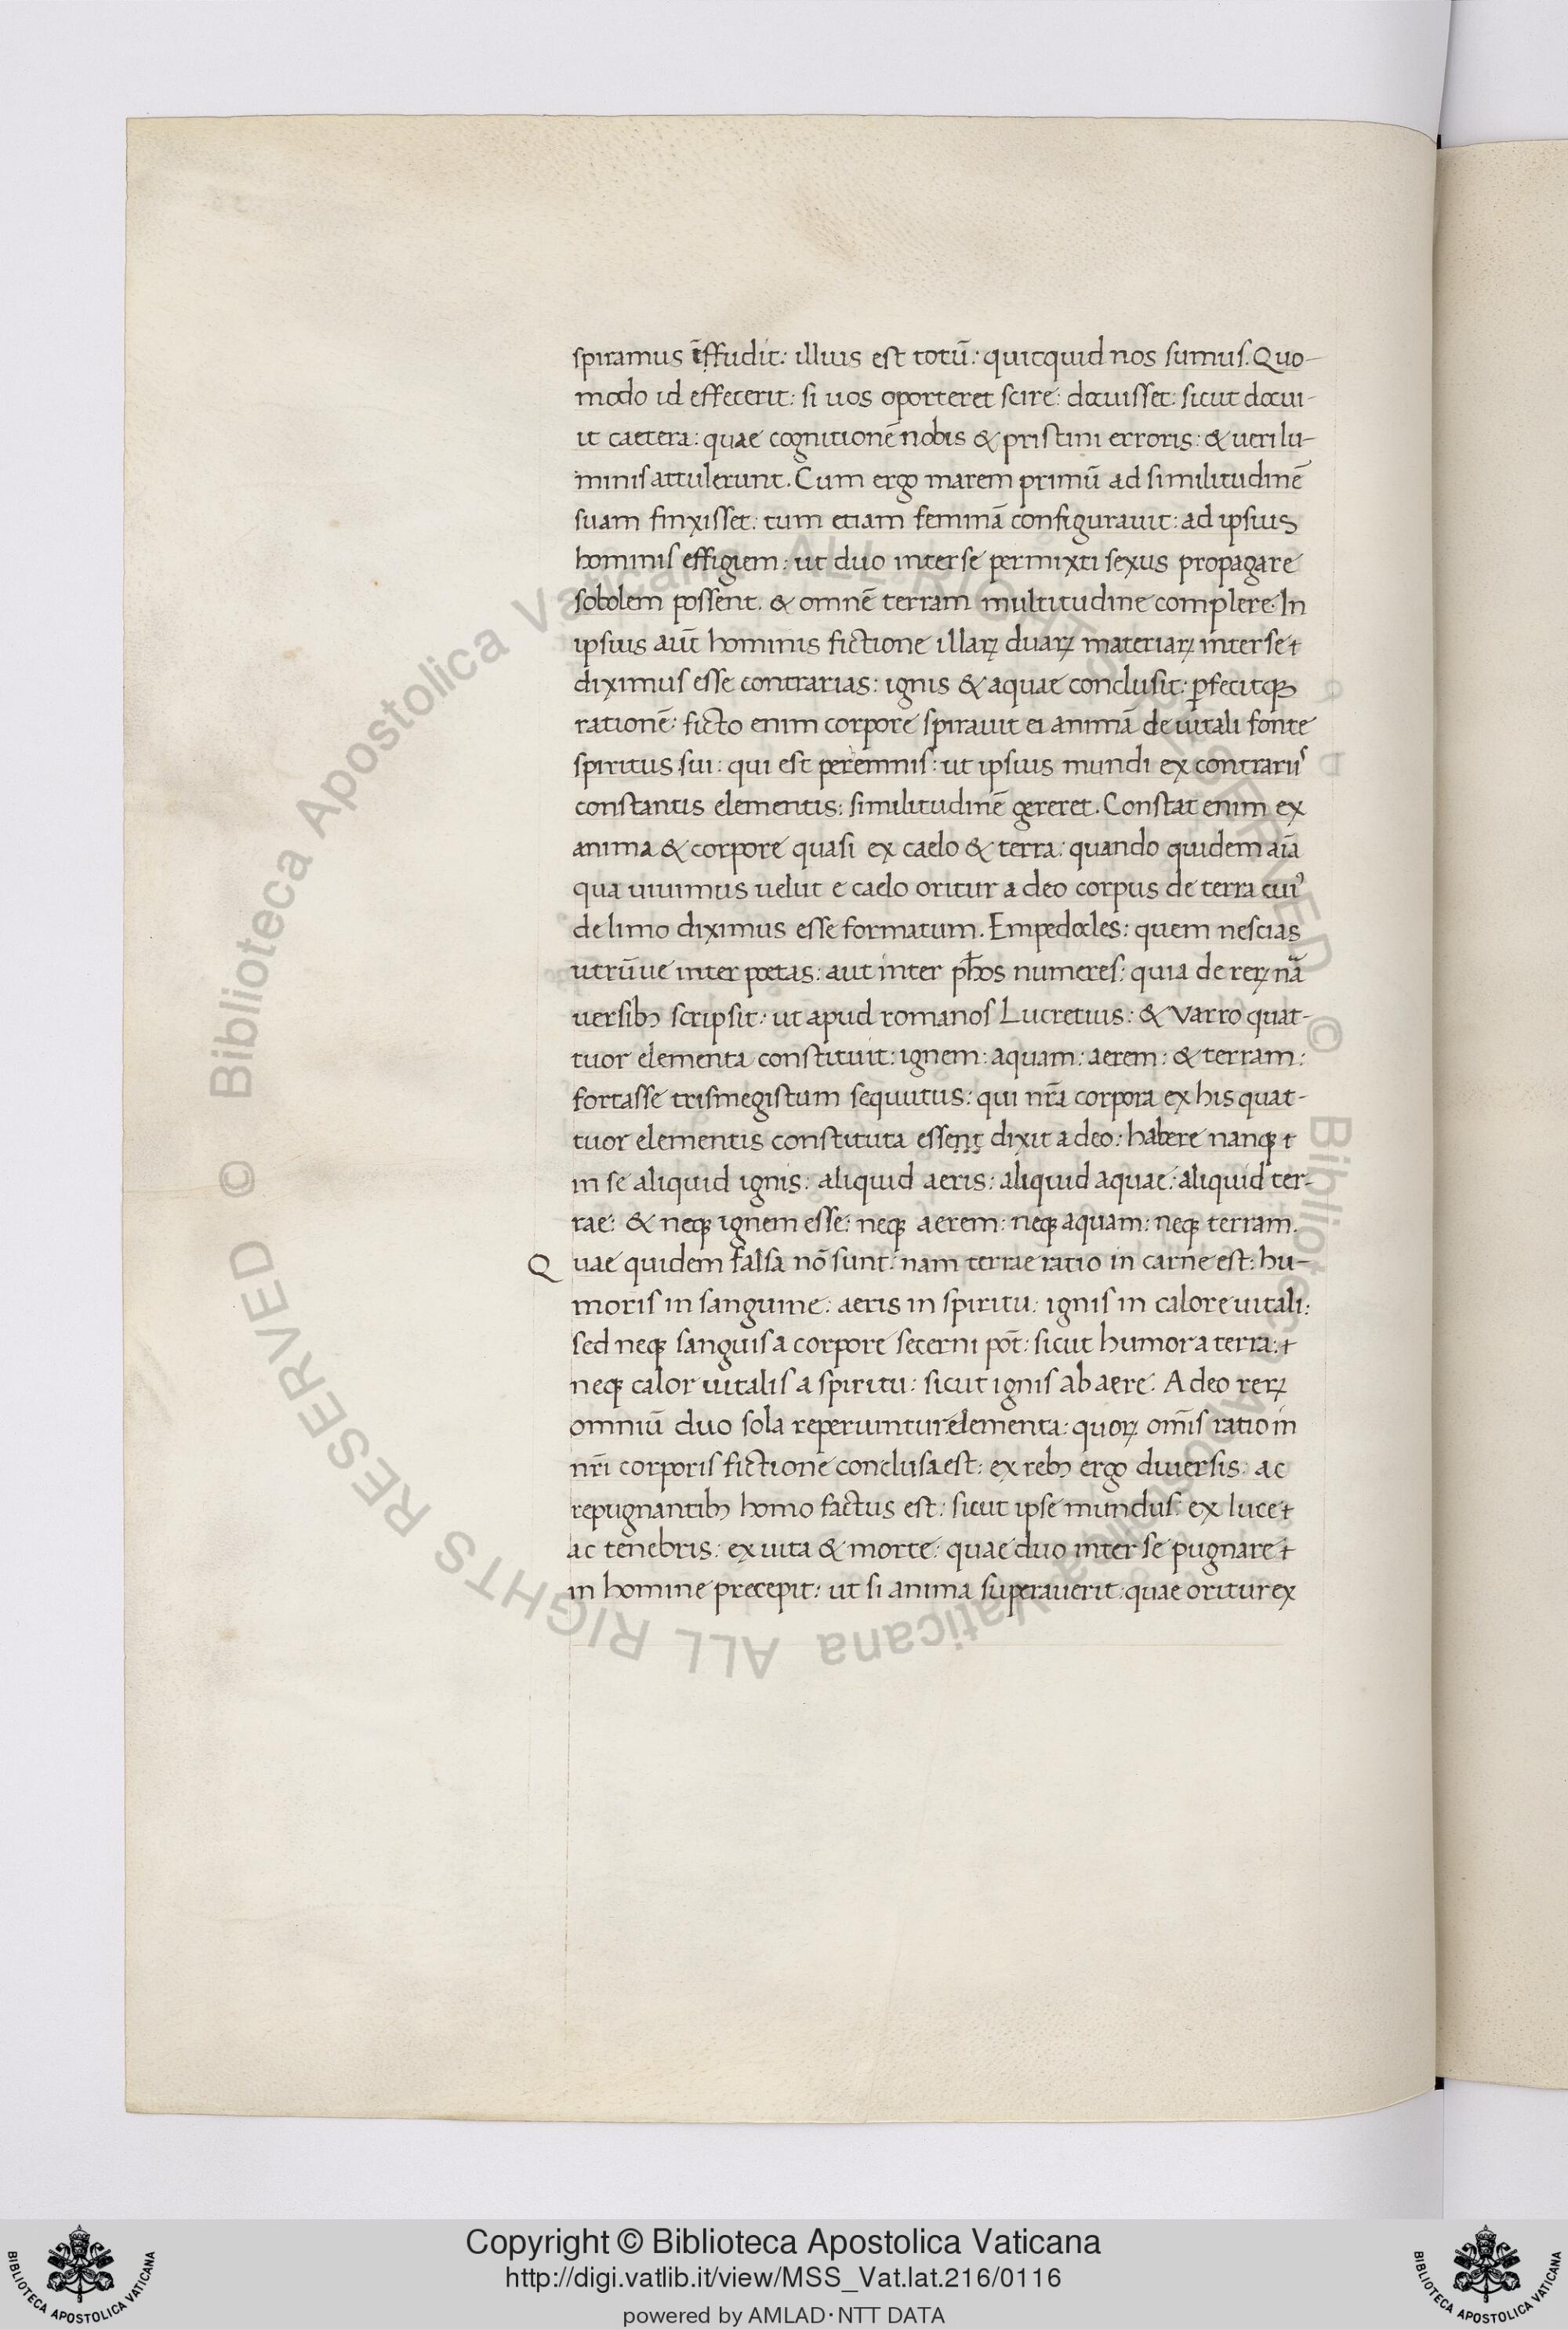 spiramus īffudit: illius est totū: quicquid nos sumus. Quo-
modo id effecerit: si uos oporteret scire: docuisset: sicut docui-
it caetera: quae cognitionē nobis & pristini erroris: & ueri lu-
minis attulerunt. Cum ergo marem primū ad similitudinē
suam finxisset: tum etiam feminā configurauit: ad ipsius
hominis effigiem: ut duo inter se permixti sexus propagare
sobolem possent. & omnē terram multitudine complere. In
ipsius aūt hominis fictione illaꝝ duaꝝ materiaꝝ inter se
diximus esse contrarias: ignis & aquae conclusit: ꝑfecitqꝫ
rationē: ficto enim corpore spirauit ei animā de uitali fonte
spiritus sui: qui est peremnis: ut ipsius mundi ex contrariis
constantis elementis: similitudinē gereret. Constat enim ex
anima & corpore quasi ex caelo & terra: quando quidem aīa
qua uiuimus uelut e caelo oritur a deo corpus de terra cuiꝰ
de limo diximus esse formatum. Empedocles: quem nescias
utrūue inter poetas: aut inter ph̄os numeres: quia de reꝝ nā
uersibꝫ scripsit: ut apud romanos Lucretius: & Varro quat-
tuor elementa constituit: ignem: aquam: aerem: & terram:
fortasse trismegistum sequutus: qui nr̄a corpora ex his quat-
tuor elementis constituta essent dixit a deo: habere nanqꝫ
in se aliquid ignis: aliquid aeris: aliquid aquae: aliquid ter-
rae: & neqꝫ ignem esse: neqꝫ aerem: neqꝫ aquam: neqꝫ terram.
Quae quidem falsa nō sunt: nam terrae ratio in carne est: hu-
moris in sanguine: aeris in spiritu: ignis in calore uitali:
sed neqꝫ sanguis a corpore secerni pōt: sicut humor a terra:
neqꝫ calor uitalis a spiritu: sicut ignis ab aere. Adeo reꝝ
omniū duo sola reperiuntur elementa: quoꝝ om̄is ratio in
nr̄i corporis fictione conclusa est: ex rebꝫ ergo diuersis: ac
repugnantibꝫ homo factus est: sicut ipse mundus: ex luce
ac tenebris: ex uita & morte: quae duo inter se pugnare
in homine precepit: ut si anima superauerit: quae oritur ex
© Biblioteca Apostolica Vaticana ALL RIGHTS RESERVED © Biblioteca Apostolica Vaticana ALL RIGHTS RESERVED
Copyright © Biblioteca Apostolica Vaticana
http://digi.vatlib.it/view/MSS_Vat.lat.216/0116
powered by AMLAD·NTT DATA
BIBLIOTECA APOSTOLICA VATICANA
BIBLIOTECA APOSTOLICA VATICANA